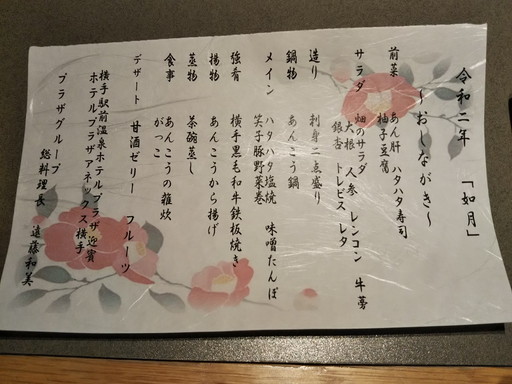 令和二年 「如月」
～おしながき～
前菜 あん肝 ハタハタ寿司
柚子豆腐
サラダ 畑のサラダ
大根 人参 レンコン 牛蒡
銀杏 トレビス レタ
造り 刺身二点盛り
鍋物 あんこう鍋
メイン ハタハタ塩焼 味噌たんぽ
笑子豚野菜巻
強肴 横手黒毛和牛鉄板焼き
揚物 あんこうから揚げ
蒸物 茶碗蒸し
食事 あんこうの雑炊
がっこ
デザート 甘酒ゼリー フルーツ
横手駅前温泉ホテルプラザ迎賓
ホテルプラザアネックス横手
プラザグループ
総料理長 遠藤和美